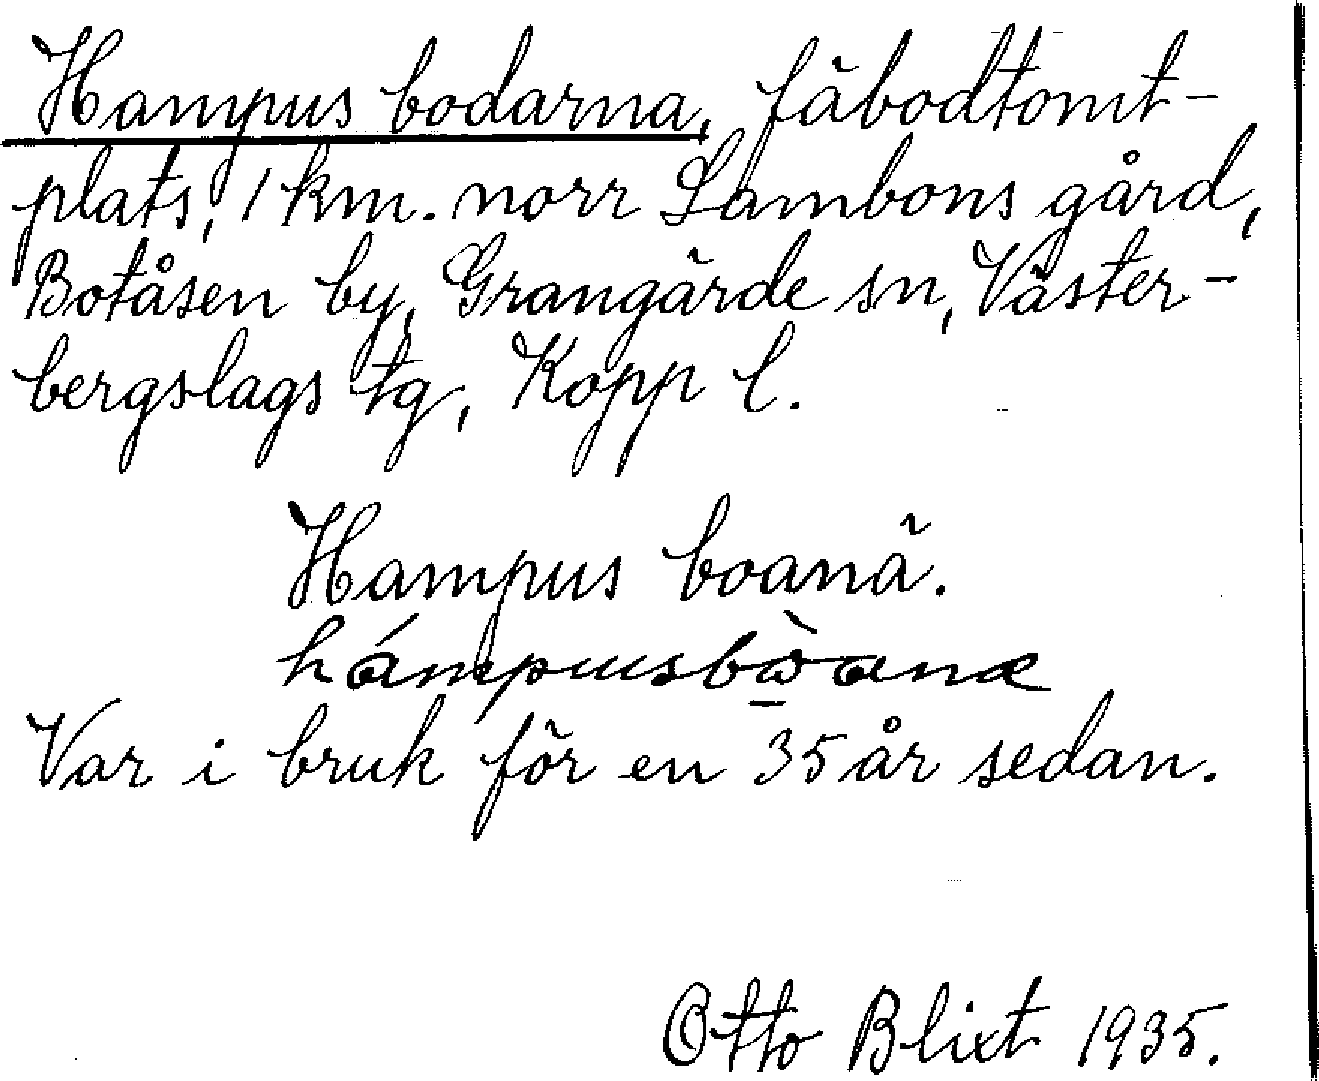 Hampus bodarna, fäbodtomt-
plats, 1 km. norr Lambons gård,
Botåsen by, Grangärde sn, Väster-
bergslags tg, Kopp l.
Hampus boanä.
hámpusbò̱anæ
Var i bruk för en 35 år sedan.
Otto Blixt 1935.